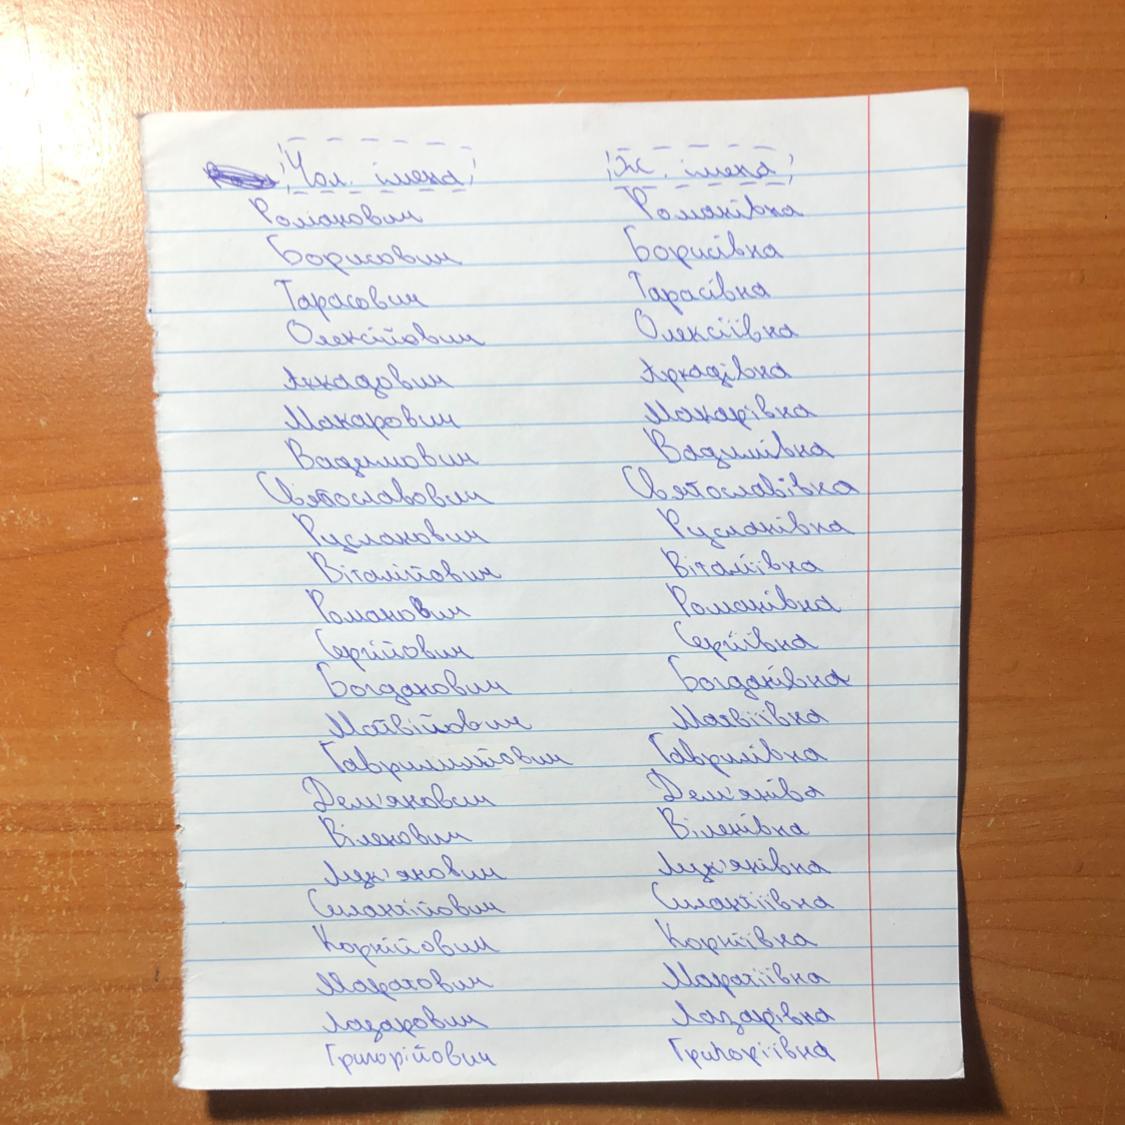 Чол. імена Ж. імена
Романович Романівна
Борисович Борисівна
Тарасович Тарасівна
Олексійович Олексіївна
Аркадович Аркадівна
Макарович Макарівна
Вадимович Вадимівна
Святославович Святославівна
Русланович Русланівна
Віталійович Віталіївна
Романович Романівна
Сергійович Сергіївна
Богданович Богданівна
Матвійович Матвіївна
Гаврилилйович Гаврилівна
Дем'янович Дем'яніва
Віленович Віленівна
Лук'янович Лук'янівна
Силантійович Силантіївна
Корнійович Корніївна
Маратович Маратіївна
Лазарович Лазарівна
Григорійович Григоріївна